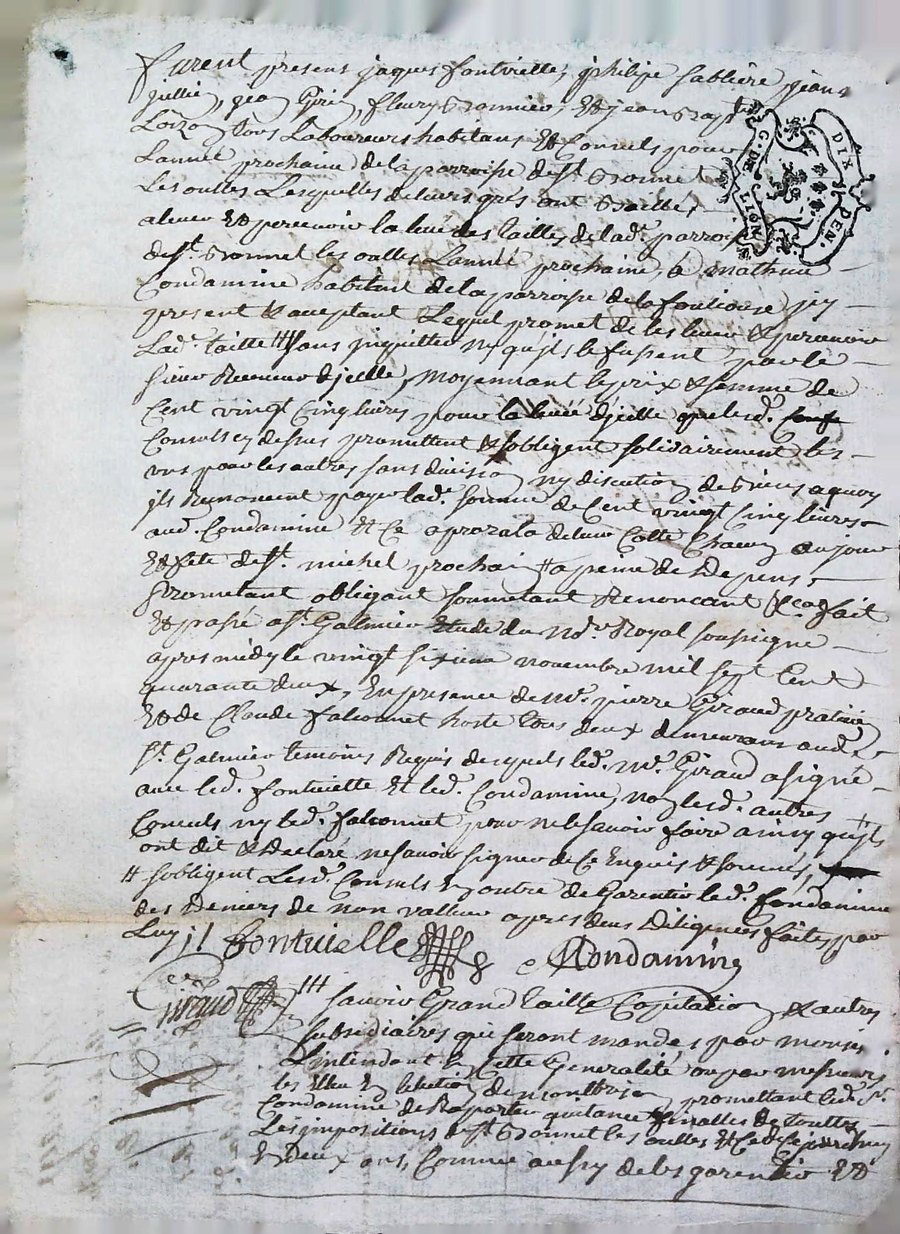 furent presens jaques fontvielle, philipe sabliere jean
jullie, jean Gprie, fleury bonnier, Et jean bapt
Loizon tous Laboureurs habitans Et Consuls pour
Lannée prochaine de la parroisse de st bonnet
Les oulles Lesquelles de leurs grés ont baillé
a lever Et percevoir la levée des tailles de lad. parroisse
de st. bonnet les oulles Lannée prochaine, à mathieu
Condamine habitant de la parroisse de la fouliouse jcy
present & acceptant Lequel promet de les lever & percevoir
Lad. taille /// sans jnquietter ny qu'jls le fussent par le
sieur Receveur djcelle, Moyennant le prix & somme de
Cent vingt Cinq livres pour la levée djcelle que lesd.
Consuls cy dessus promettent & sobligent solidairement les
uns pour les autres sans division ny discution de biens a quoy
jls Renoncent payer lad. somme de Cent vingt Cinq livres
aud. Condamine Et Ce a prorata de leur Cotte Chacun au jour
Et fete de st. michel prochain # a peine de Depens
Promettant obligeant soumettant Renoncant &ca fait
Et passé a st Galmier Etude du No.re Royal soussigné
apres midy le vingt sixieme novembre mil sept Cent
quarante deux, En presence de me. pierre Giraud praticien
Et de Claude falconnet hoste tous deux demeurans aud.
st. Galmier temoins Requis desquels led. me. Giraud a signé
avec led. fontvielle Et led. Condamine, non lesd. autres
Consuls ny led. falconnet pour ne le savoir faire ainsy qu'jls
ont dit & Declaré ne savoir signer de Ce Enquis & sommés,
# sobligent Lesd. Consuls En outre de Garentir led. Condamine
des Deniers de non valleur apres deues Diligences faites par
Luy j!
fontvielle
Condamine
Giraud
/// savoir Grand taille Capitation & autres
subsidiaires qui seront mandés par monsr
Lintendant de Cette Generalité ou par messieurs
les Eleu En lelection de montbrison promettant led. sr.
Condamine de Raporter quitance finalles de touttes
Les impositions de st bonnet les oulles
En deux ans, Comme aussy de les garentir Et
G. DE LION
DIX
PEN.